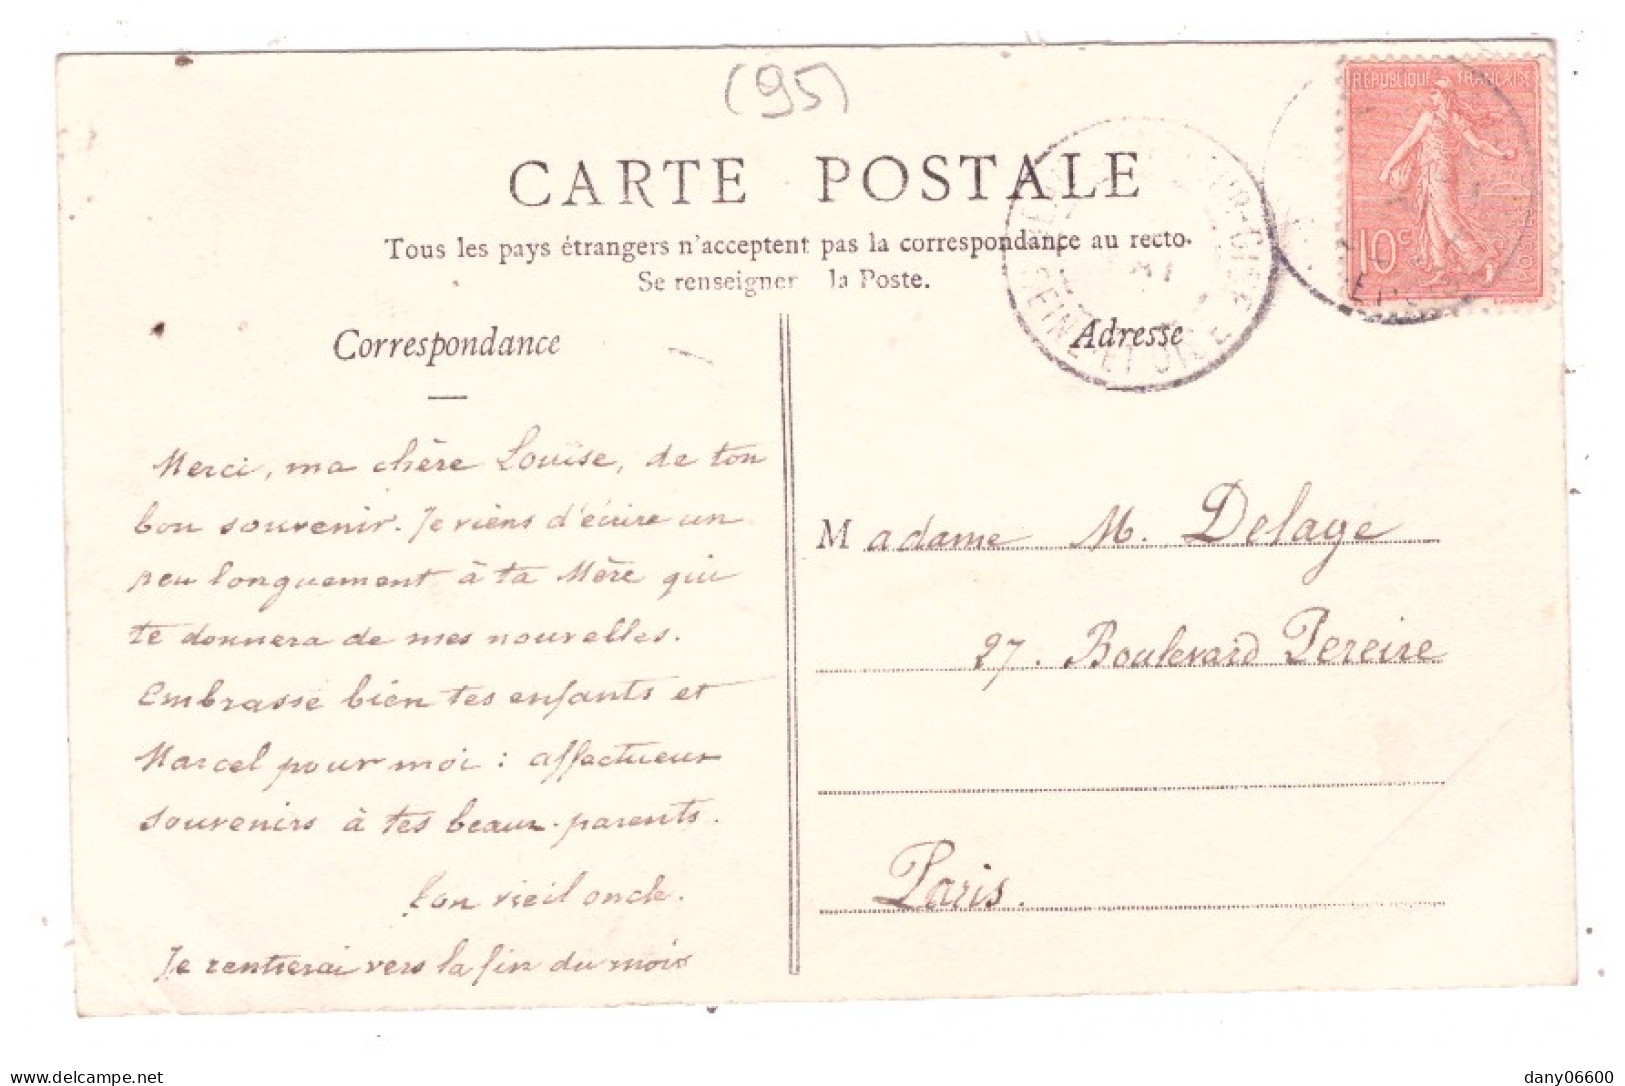 (95)
RÉPUBLIQUE FRANÇAISE
10c
CARTE POSTALE
Tous les pays étrangers n'acceptent pas la correspondance au recto.
Se renseigner la Poste.
SEINE-ET-OISE
Correspondance
Merci, ma chère Louise, de ton
bon souvenir. Je viens d'écrire un
peu longuement à ta Mère qui
te donnera de mes nouvelles.
Embrasse bien tes enfants et
Marcel pour moi : affectueux
souvenirs à tes beaux-parents.
Ton vieil oncle.
Je rentrerai vers la fin du mois
Adresse
Madame M. Delage
27. Boulevard Pereire
Paris.
delcampe.net
dany06600